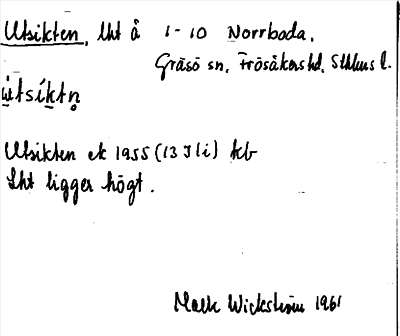 Utsikten, lht å 1-10 Norrboda,
Gräsö sn, Frösåkers hd, Sthlms l.
ùtsíktn̥
Utsikten ek 1955 (13 I 1 i) kb
Lht ligger högt.
Wickström 1961